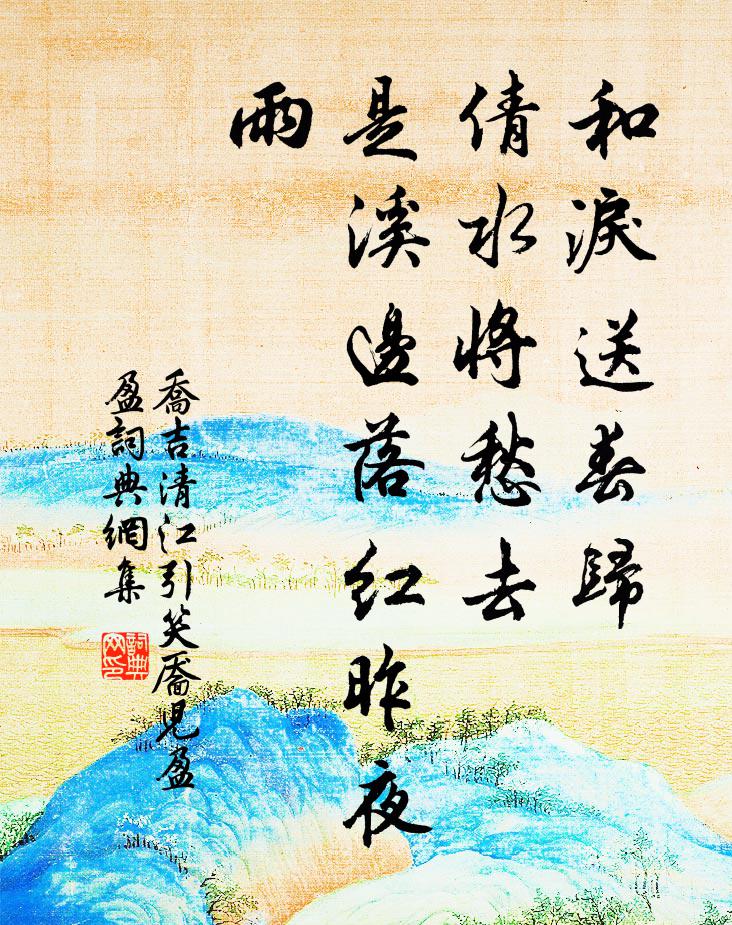 和淚送春歸
倩水將愁去
是溪邊落紅昨夜
雨
喬吉清江引笑靨兒盈
盈詞典網集
詞典
网印